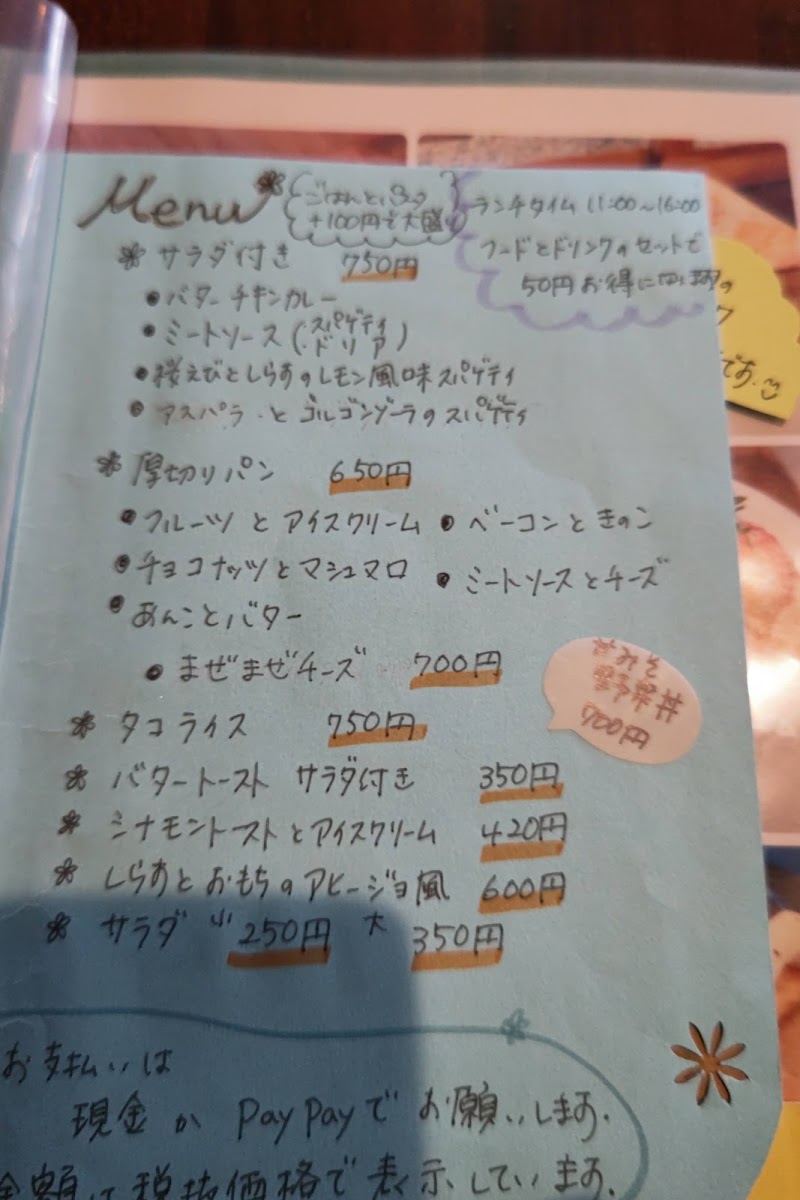 Menu
ごはんとパスタ
+100円で大盛り
ランチタイム 11:00~16:00
フードとドリンクのセットで
50円お得に
サラダ付き 750円
バターチキンカレー
ミートソース(・スパゲティ ・ドリア)
桜えびとしらすのレモン風味スパゲティ
アスパラ・とゴルゴンゾーラのスパゲティ
厚切りパン 650円
フルーツとアイスクリーム
ベーコンときのこ
チョコナッツとマシュマロ
ミートソースとチーズ
あんことバター
まぜまぜチーズ 700円
甘みそ
野菜丼
700円
タコライス 750円
バタートースト サラダ付き 350円
シナモントーストとアイスクリーム 420円
しらすとおもちのアヒージョ風 600円
サラダ 小 250円 大 350円
です。
お支払いは
現金か PayPayでお願いします。
金額は税抜価格で表示しています。